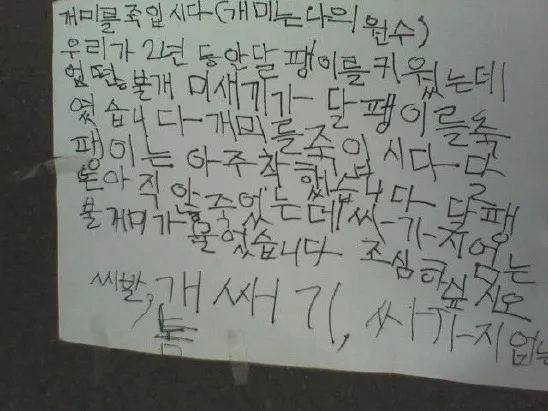 개미를 죽입시다 (개미는 나의 원수)
우리가 2년 동안 달팽이를 키웠는데
불개미새기가 달팽이를 죽
였습니다 개미를 죽입시다. 달
팽이는 아주 착했습니다 달팽
아직 안죽었는데 싸가지없는
불개미가 물었습니다 조심하싶시오
씨빨, 개쌔기, 싸가지없는
놈